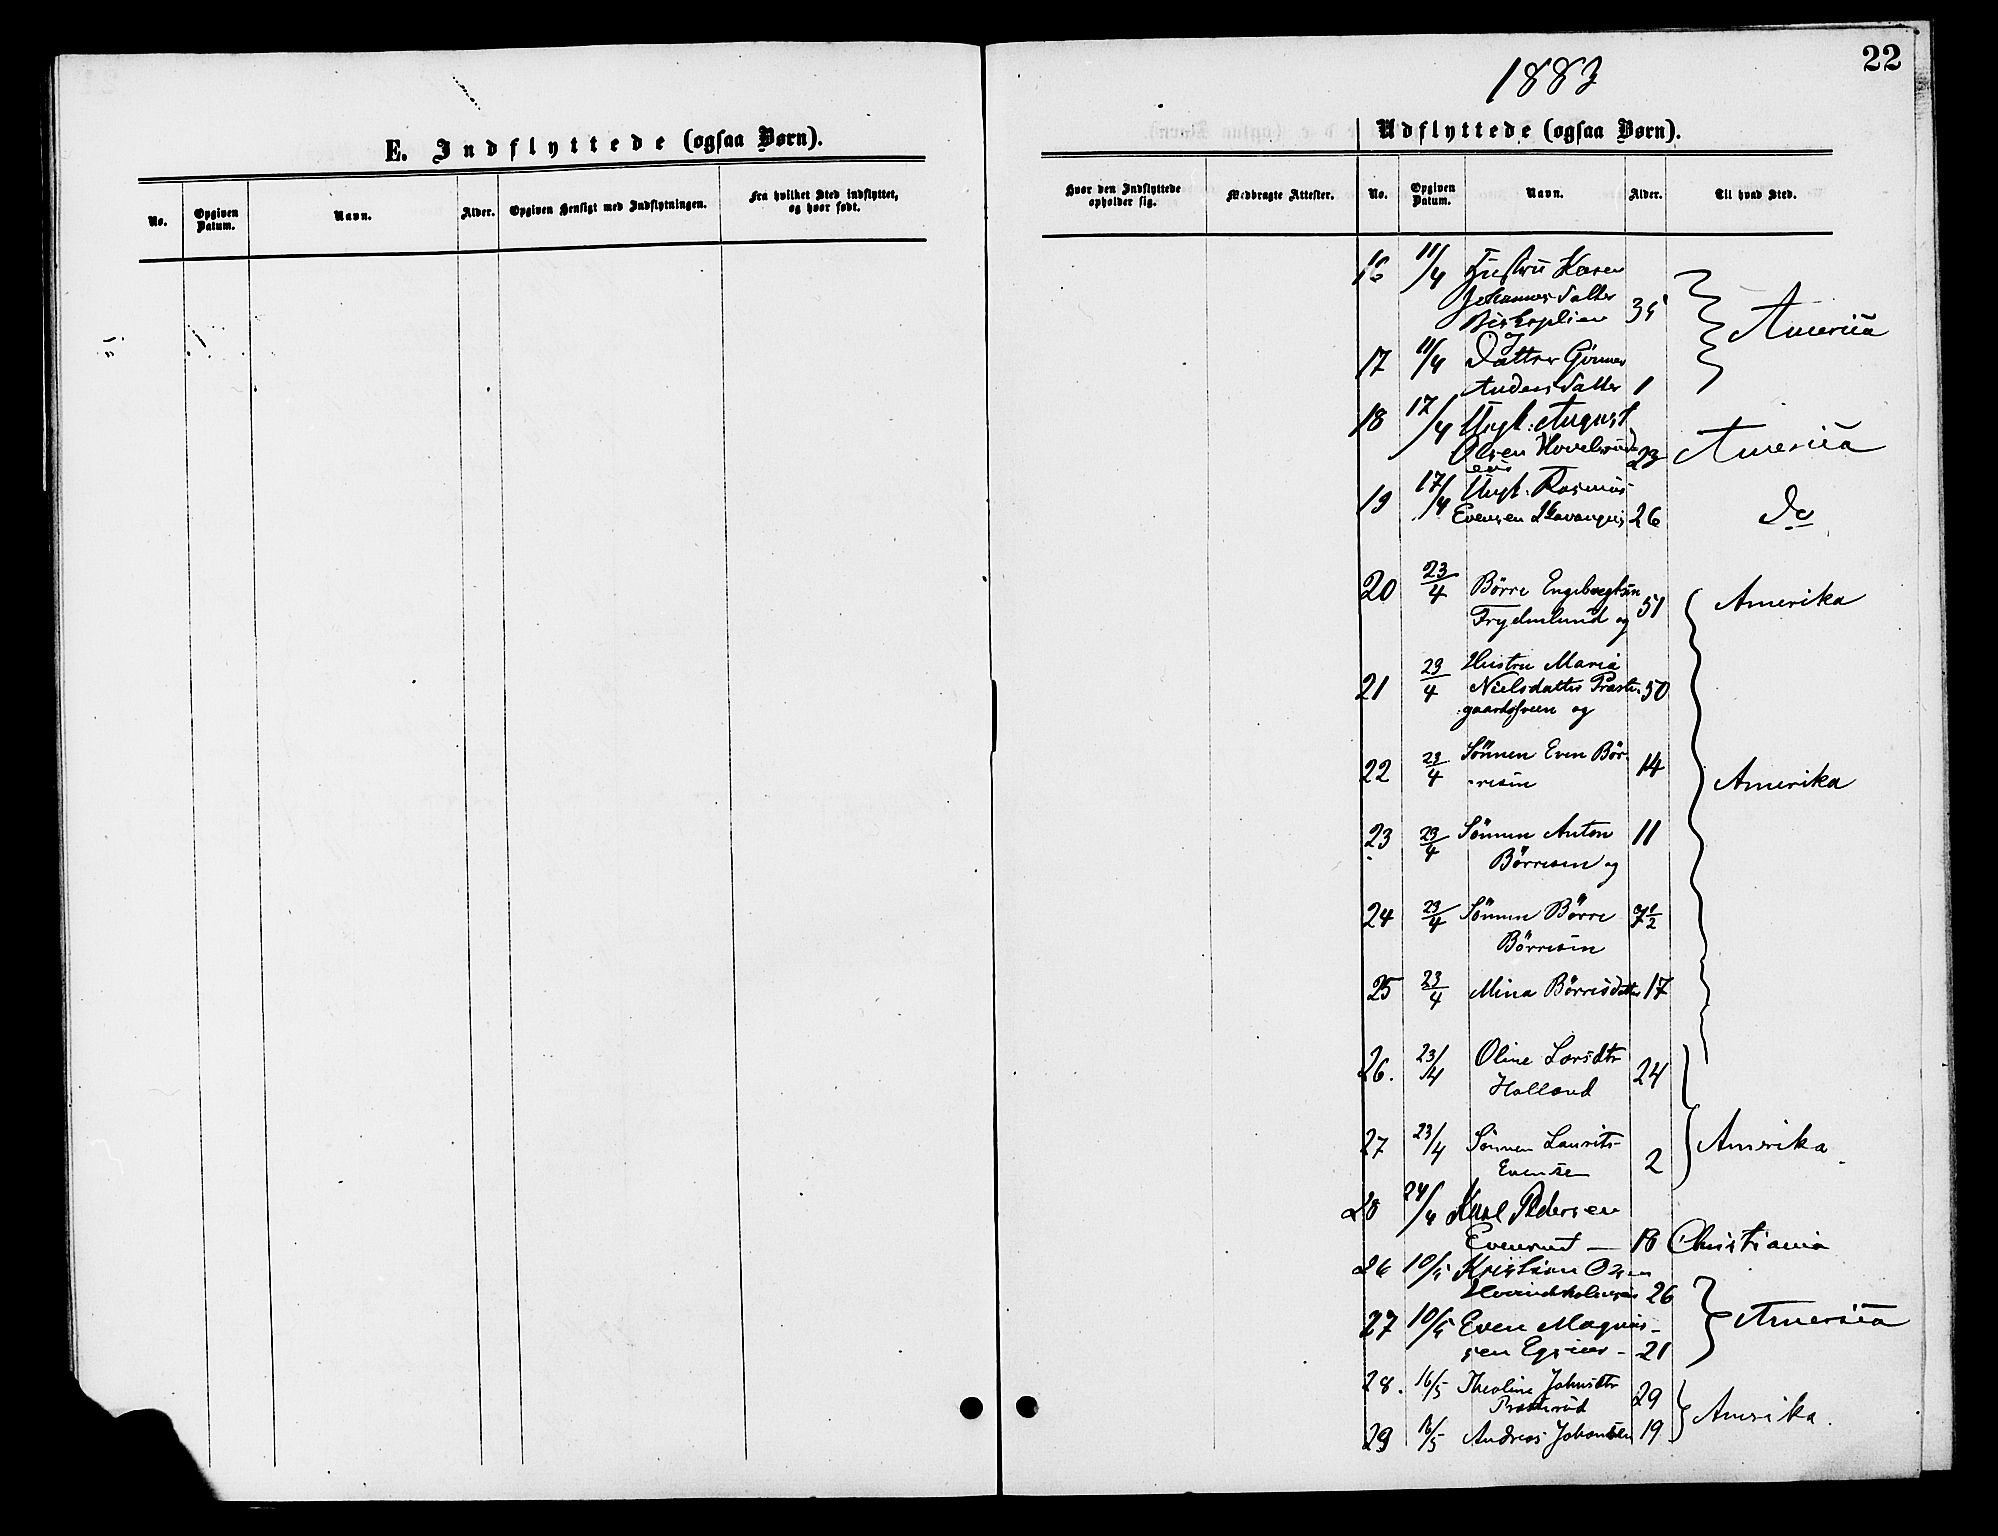 22
1883
E. Indflyttede (ogsaa Børn).
Udflyttede (ogsaa Børn).
No.
Opgiven Datum.
Navn.
Alder.
Opgiven Hensigt med Indflytningen.
Fra hvilket Sted indflyttet, og hvor født.
Hvor den Indflyttede opholder sig.
Medbragte Attester.
No.
Opgiven Datum.
Navn.
Alder.
Til hvad Sted.
16 11/4 Hustru Karen
Johannesdatter
35 America
17 11/4 Datter
Andersdatter 1
18 17/4 Ungk. August
Olsen 23 America
19 17/4 Ungk. Rasmus
Evensen 26 Do
20 23/4 Børre Engebregtsen
Frydenlund og 51 Amerika
21 23/4 Hustru Maria
Nielsdatter Præste- 50
gaardsveen og
22 23/4 Sönnen Even Bör- 14
resen Amerika
23 23/4 Sönnen Anton 11
Börresen og
24 23/4 Sönnen Börre 7½
Börresen
25 23/4 Mina Börresdatter 17
26. 23/4 Oline Larsdtr
Holland 24
27 23/4 Sönnen Laurits
Evensen 2 Amerika.
28 24/4 Karl Pedersen
Evensrud — 18 Christiania
26 10/5 Kristian Olsen
26
27 10/5 Even Magnus-
sen — 21 America
28. 16/5 Theoline Johnsdtr 29
29 16/5 Andreas Johansen 19 Amerika.